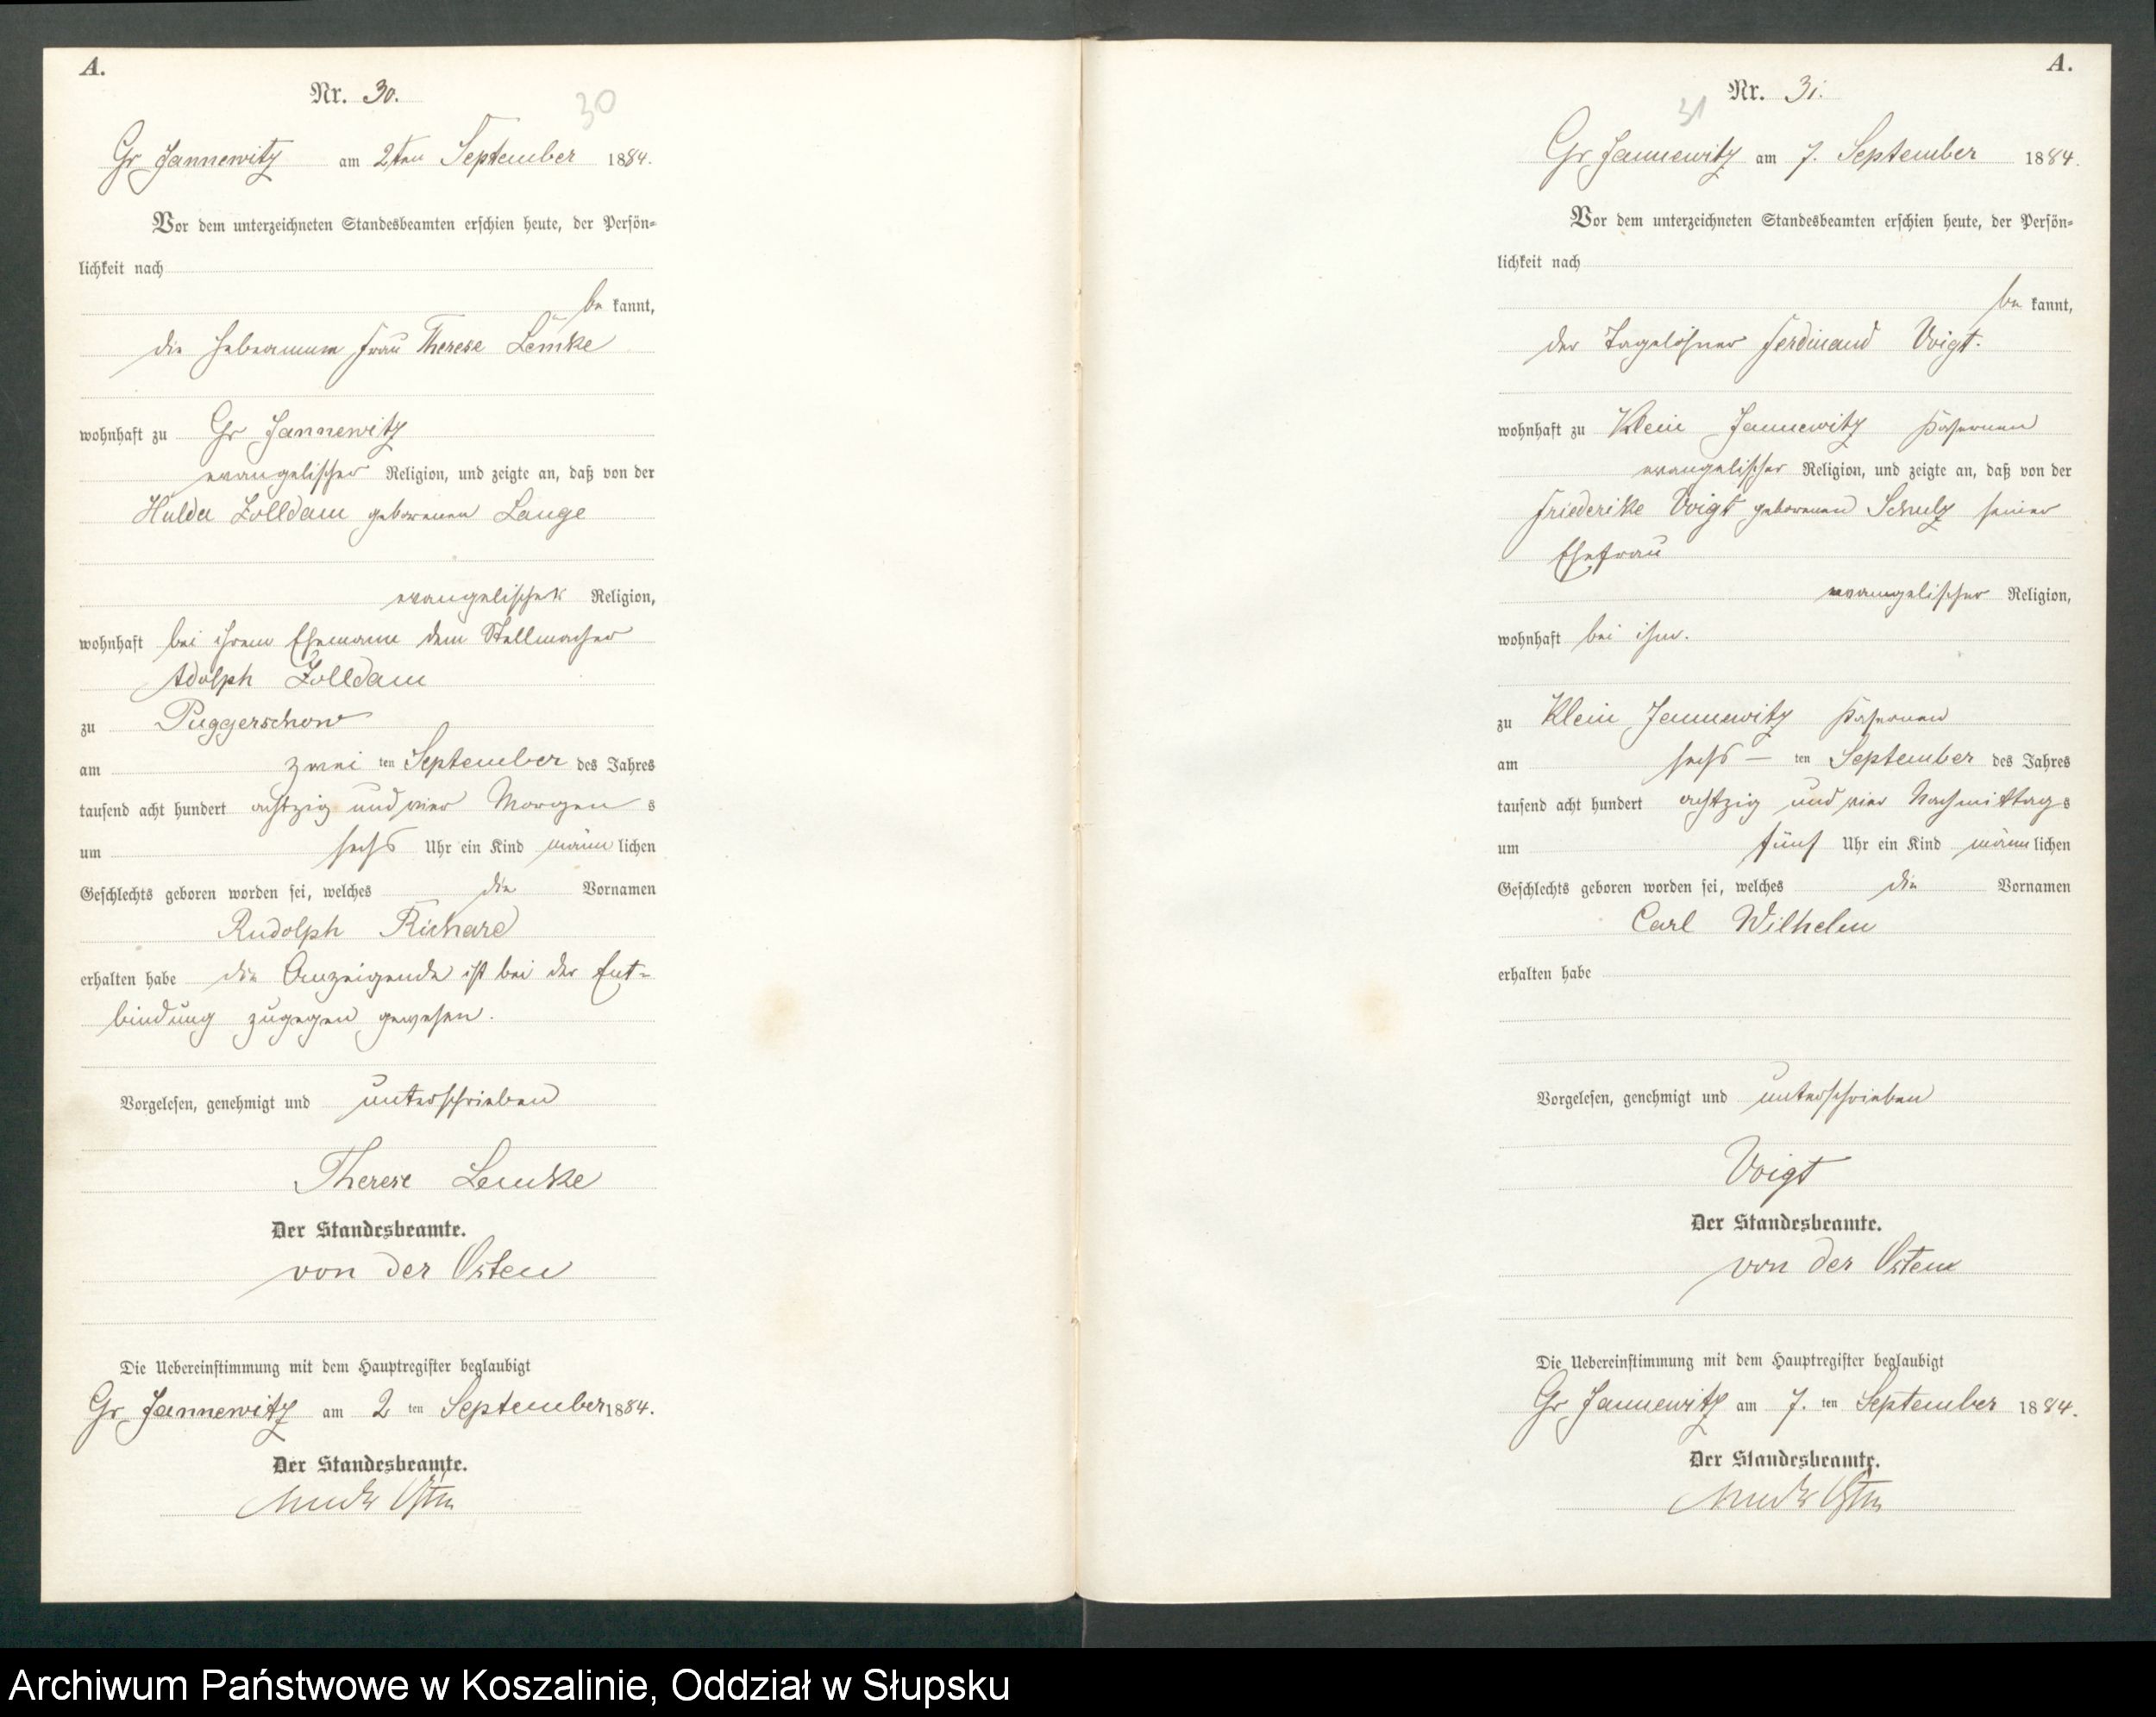 A.
Nr. 30.
30
Gr Jannewitz am 2ten September 1884.
Vor dem unterzeichneten Standesbeamten erschien heute, der Persön-
lichkeit nach
be kannt,
die Hebeamme Frau Therese Lemke
wohnhaft zu Gr Jannewitz
evangelischer Religion, und zeigte an, daß von der
Hulda Zolldam geborenen Lange
evangelischer Religion,
wohnhaft bei ihrem Ehemanne dem Stellmacher
Adolph Zolldam
zu Puggerschow
am zwei ten September des Jahres
tausend acht hundert achtzig und vier Morgen s
um sechs Uhr ein Kind männ lichen
Geschlechts geboren worden sei, welches die Vornamen
Rudolph Richard
erhalten habe die Anzeigende ist bei der Ent-
bindung zugegen gewesen.
Vorgelesen, genehmigt und unterschrieben
Therese Lemke
Der Standesbeamte.
von der Osten
Die Uebereinstimmung mit dem Hauptregister beglaubigt
Gr Jannewitz am 2 ten September 1884.
Der Standesbeamte.
Osten
A.
Nr. 31.
31
Gr Jannewitz am 7. September 1884.
Vor dem unterzeichneten Standesbeamten erschien heute, der Persön-
lichkeit nach
be kannt,
der Tagelöhner Ferdinand Voigt.
wohnhaft zu Klein Jannewitz
evangelischer Religion, und zeigte an, daß von der
Friederike Voigt geborenen Schulz seiner
Ehefrau
evangelischer Religion,
wohnhaft bei ihm.
zu Klein Jannewitz
am sechs – ten September des Jahres
tausend acht hundert achtzig und vier Nachmittag s
um fünf Uhr ein Kind männ lichen
Geschlechts geboren worden sei, welches die Vornamen
Carl Wilhelm
erhalten habe
Vorgelesen, genehmigt und unterschrieben
Voigt
Der Standesbeamte.
von der Osten
Die Uebereinstimmung mit dem Hauptregister beglaubigt
Gr Jannewitz am 7. ten September 1884.
Der Standesbeamte.
Osten
Archiwum Państwowe w Koszalinie, Oddział w Słupsku